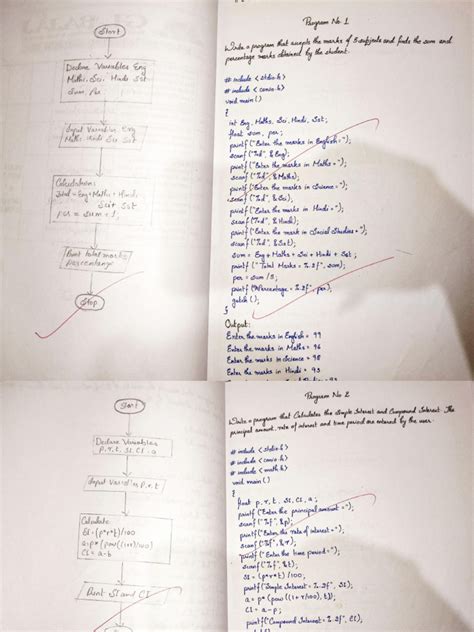 Start
Declare Variables Eng
Maths. Sci. Hindi Sst
Sum, Per
Input Variables Eng
Maths Hindi Sci Sst
Calculation:
Total = Eng + Maths + Hindi
Sci + Sst
per = sum ÷ 5
Print total marks
percentage
Stop
Program No 1
Write a program that accepts the marks of 5 subjects and finds the sum and
percentage marks obtained by the student.
# include <stdio.h>
# include <conio.h>
void main ()
{
int Eng, Maths, Sci, Hindi, Sst;
float sum, per;
printf ("Enter the marks in English = ");
scanf ("%d", &Eng);
printf ("Enter the marks in Maths = ");
scanf ("%d", &Maths);
printf ("Enter the marks in Science = ");
scanf ("%d", &Sci);
printf ("Enter the marks in Hindi = ");
scanf ("%d", &Hindi);
printf ("Enter the mark in Social Studies = ");
scanf ("%d", &Sst);
sum = Eng + Maths + Sci + Hindi + Sst;
printf ("Total Marks = %.2f", sum);
per = sum /5;
printf ("Percentage = %.2f", per);
getch ();
}
Output:
Enter the marks in English = 99
Enter the marks in Maths = 96
Enter the marks in Science = 98
Enter the marks in Hindi = 93
Start
Declare Variables
p, r, t, SI, CI, a
Input Variables P, r, t
Calculate
SI = (p*r*t)/100
a = p*(pow((1+r/100)
CI = a-p
Print SI and CI
Program No 2
Write a program that Calculates the Simple Interest and Compound Interest. The
principal amount, rate of interest and time period are entered by the user.
# include <stdio.h>
# include <conio.h>
# include <math.h>
void main ()
{
float p, r, t, SI, CI, a;
printf ("Enter the principal amount = ");
scanf ("%f", &p);
printf ("Enter the rate of interest = ");
scanf ("%f", &r);
printf ("Enter the time period = ");
scanf ("%f", &t);
SI = (p*r*t)/100;
printf ("Simple Interest = %.2f", SI);
a = p* (pow ((1+r/100), t));
CI = a-p;
printf ("Compound Interest = %.2f", CI);